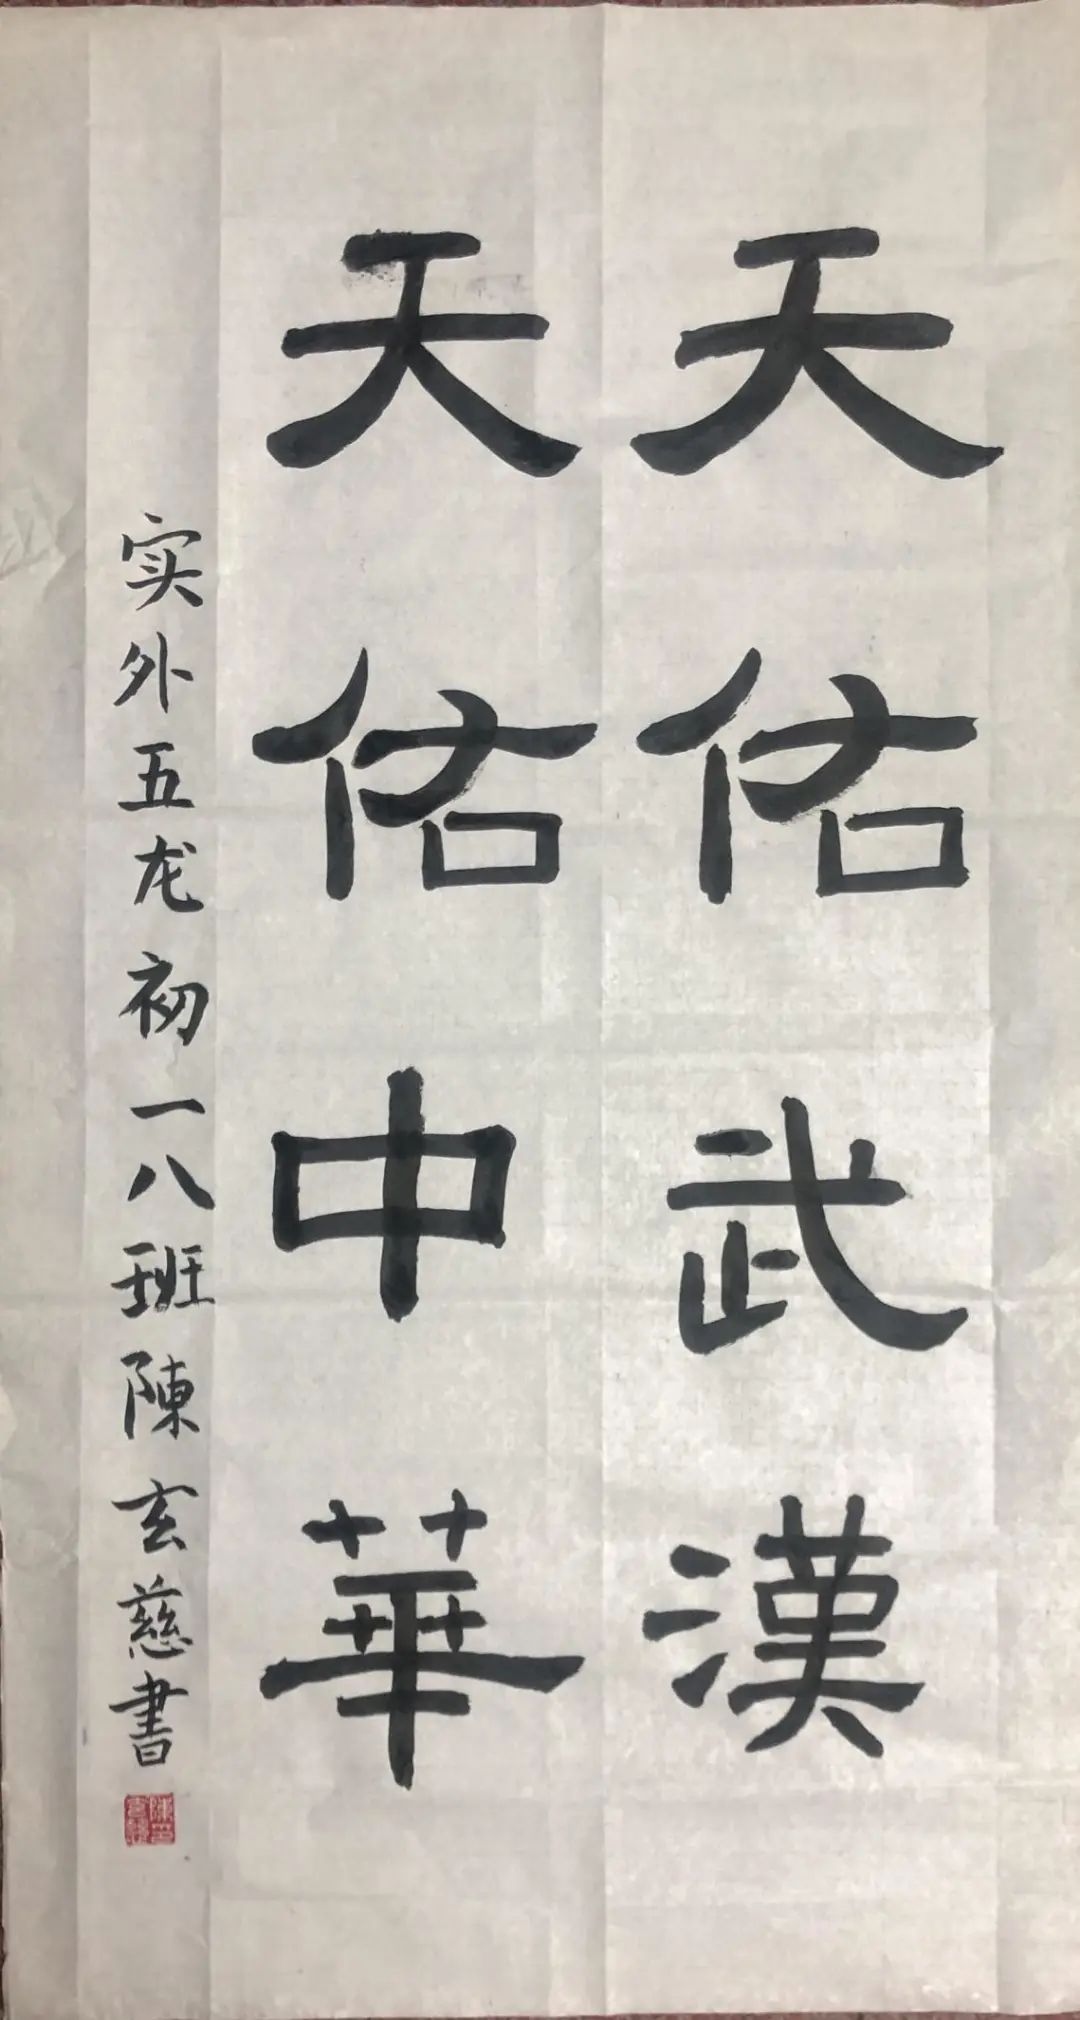 天佑武漢
天佑中華
实外五龙初一八班陳玄慈書